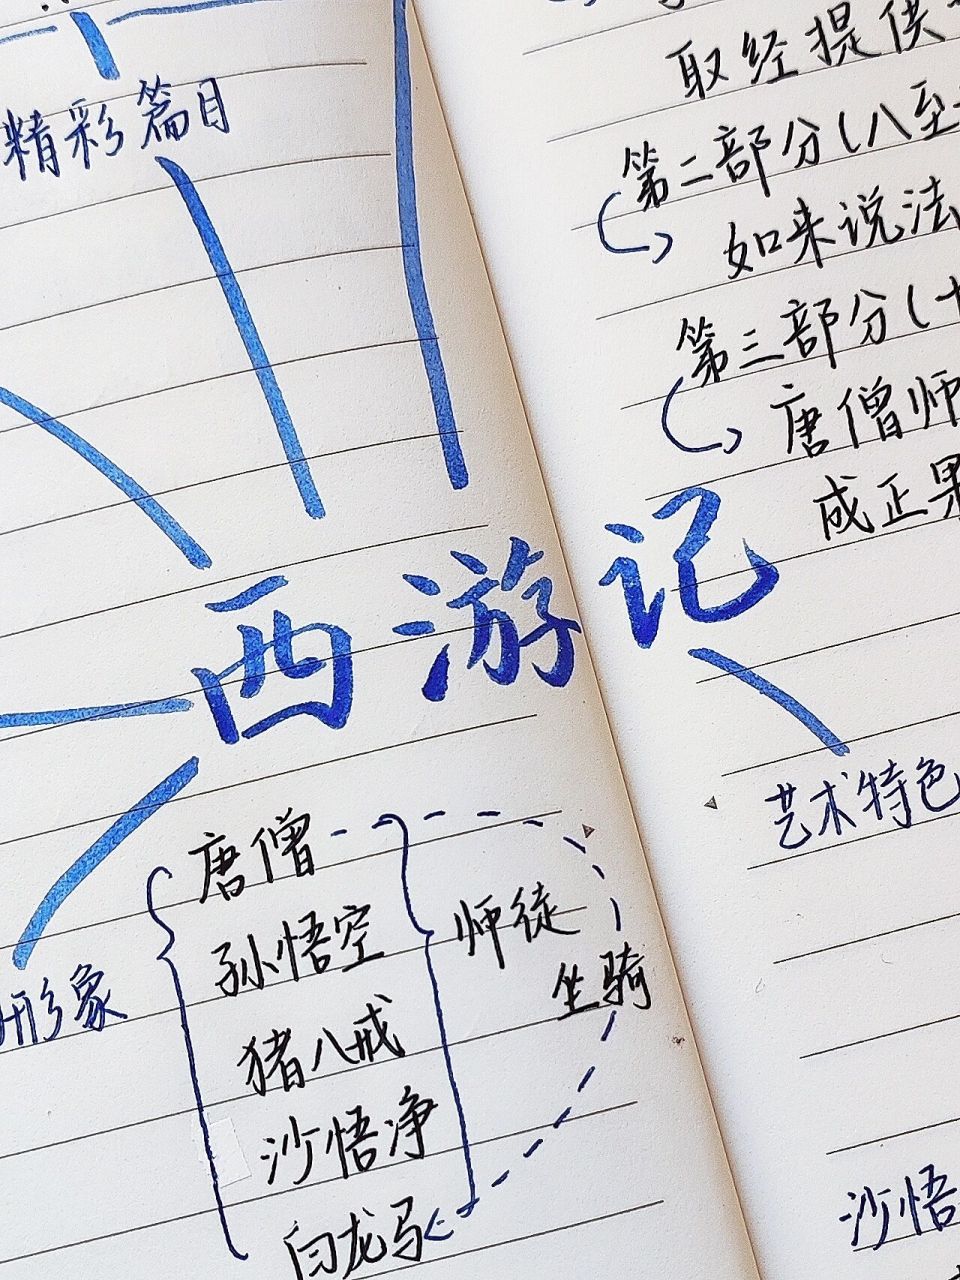 精彩篇目
取经提供
第二部分(八至
如来说法
第三部分(十
唐僧师
成正果
西游记
艺术特色
形象
唐僧
孙悟空
猪八戒
沙悟净
白龙马
师徒
坐骑
沙悟